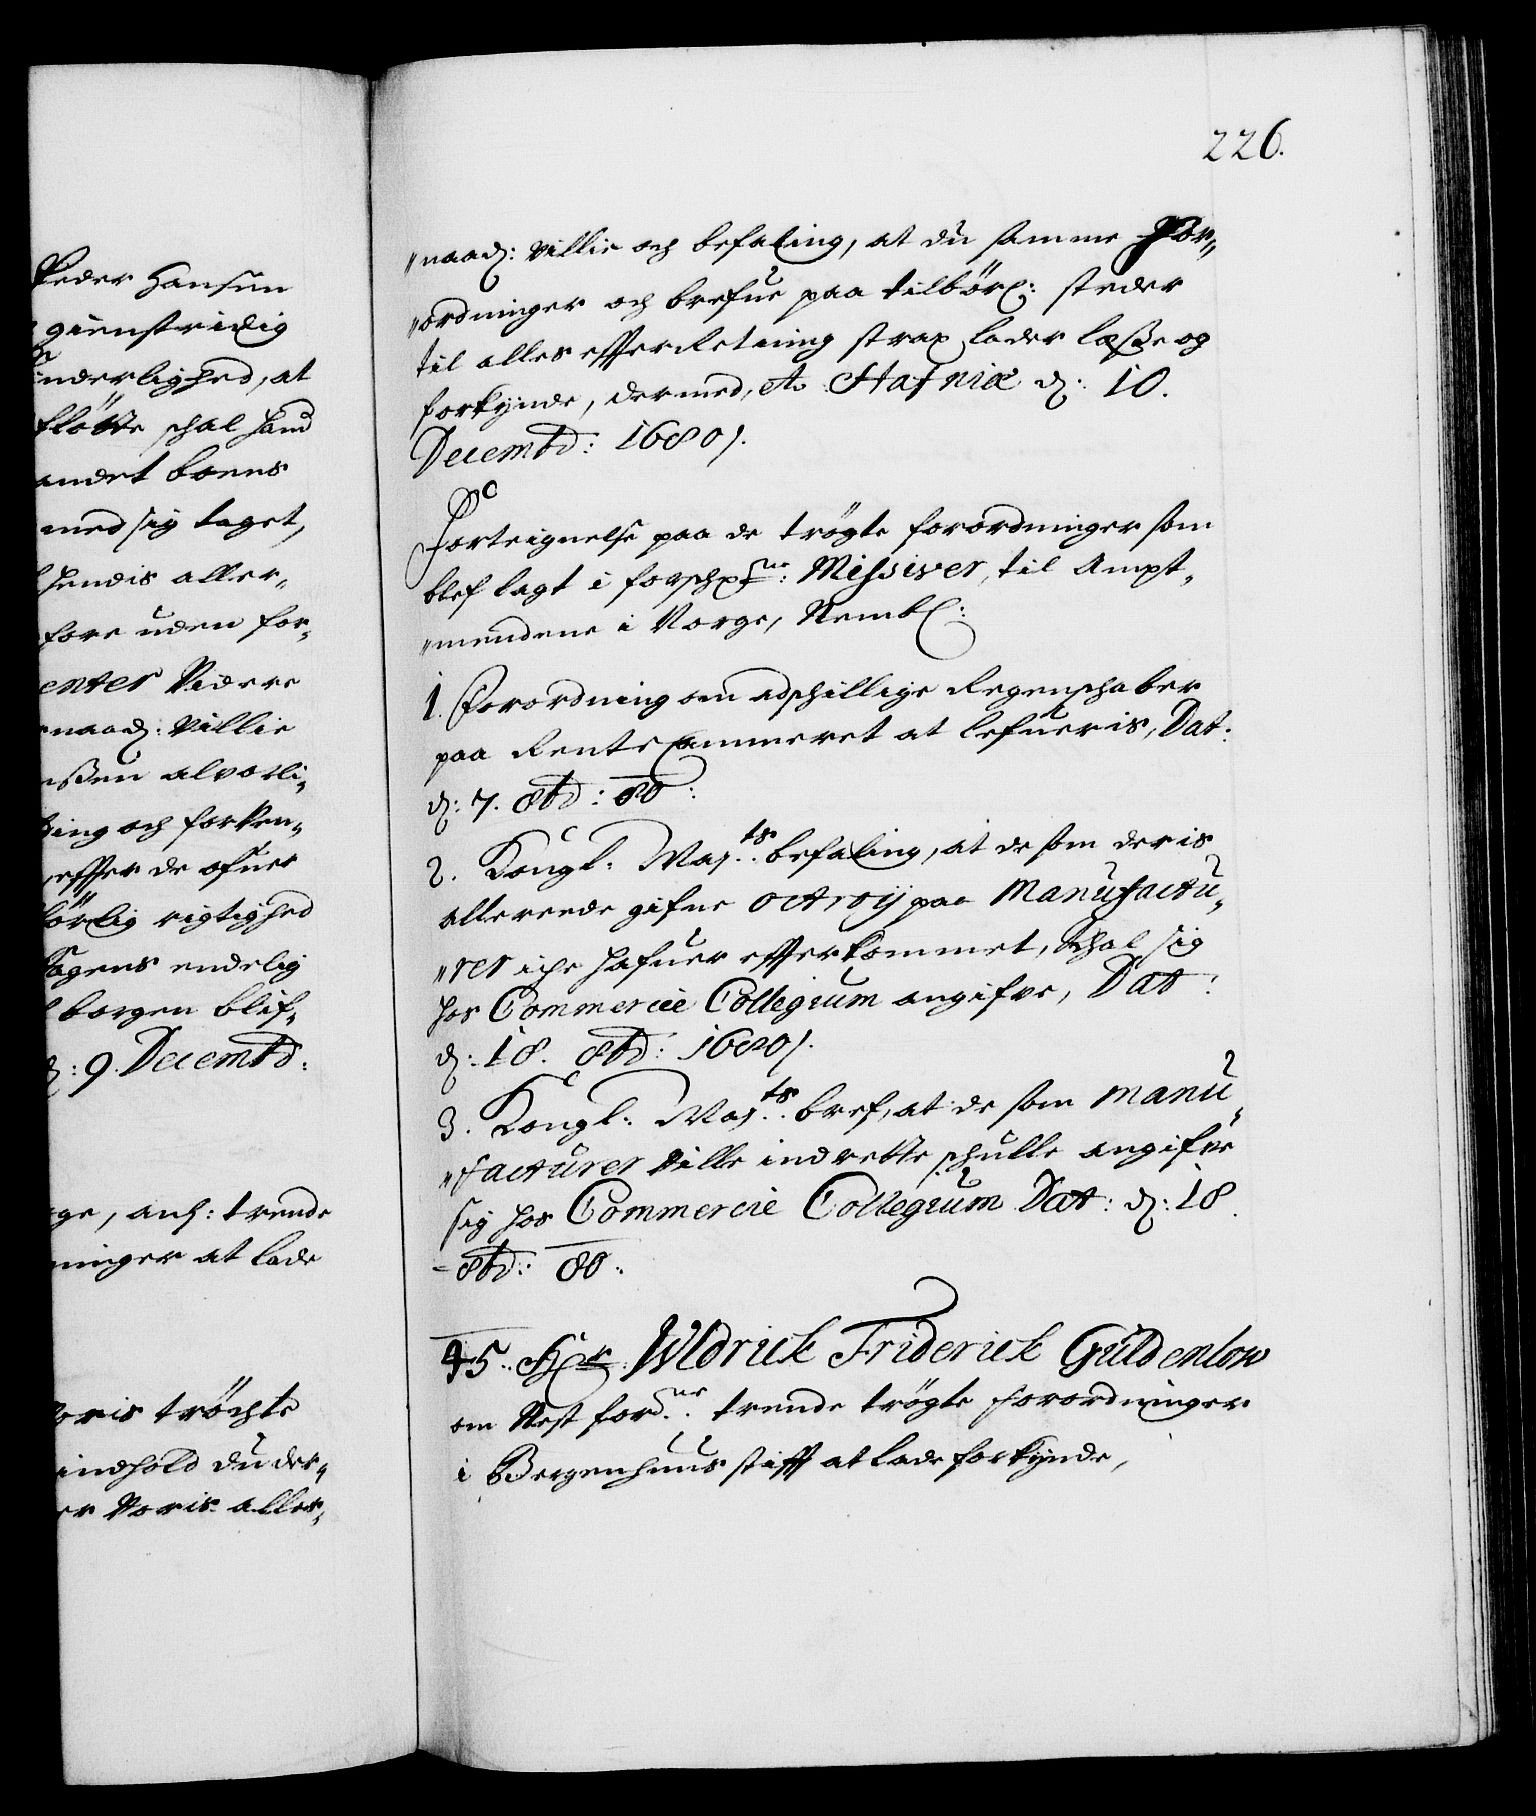 226.
Peder Hansen
gienstridig
inderlighed, at
fløtte schal hand
andet boens
med sig taget,
hendis aller„
fore uden for„
enter Videre
naad: Villie
alvorli„
ting och forken„
effter de ofuer
børlig rigtighed
Sagens endelig
borgen blif„
d: 9. Decembr:
ge, anl: trende
ninger at lade
Voris trøchte
indhold du der„
er Voris aller„
„naad: villie och befaling, at du samme For„
„ordninger och brefue paa tilbørl: steder
til alles effterRetning strax lader læsse og
forkynde, dermed, etc. Hafniæ d: 10.
Decembr: 1680.
Forteignelse paa de trøgte forordninger som
blef lagt i forschrne: Missiver, til Ampt„
„mendene i Norge, Nembl:
1. Forordning om adschillige Regenschaber
paa RenteCammeret at lefueris, Dat:
d: 7. 8br: 80:
2. Kongl: Mayts: befaling, at de som deris
allerende gifne octroy paa Manufactu„
„rer iche hafuer effterkommet, schal sig
hos Commercie Collegium angifve, Dat:
d: 18. 8br: 1680.
3. Kongl: Mayts: bref, at de som manu„
„facturer Ville indrette, schulle angifve
sig hos Commercie Collegium Dat: d: 18.
8br: 80.
45. Hr: Wldrick Friderick Güldenlow
om Nest fordne: trende trøgte forordninger
i Bergenhuus stifft at lade forkynde,